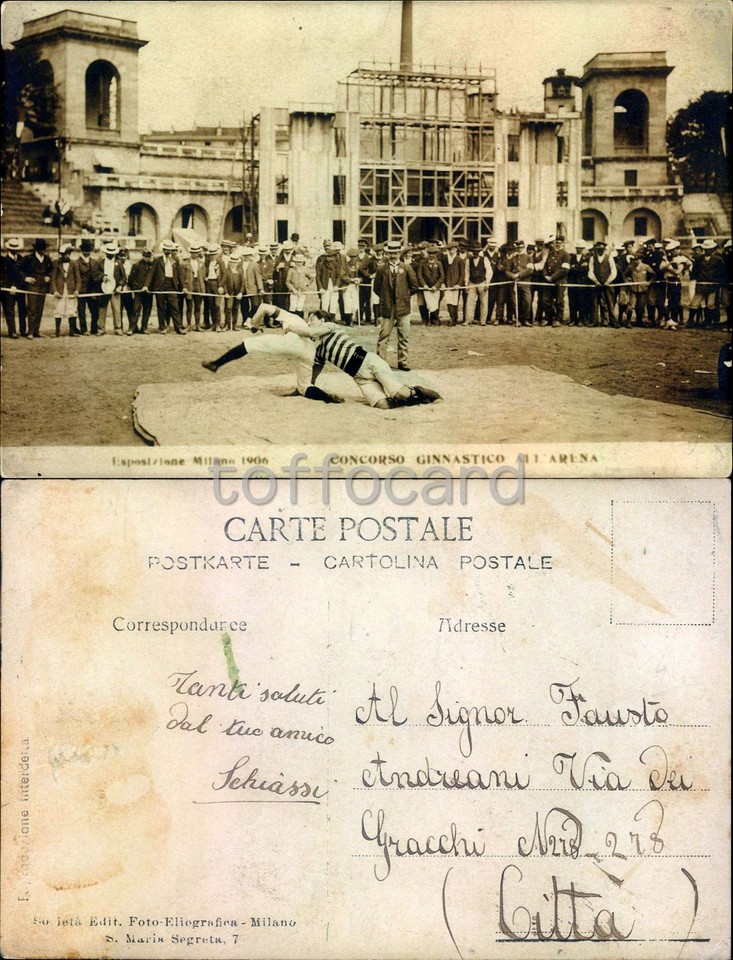 Esposizione Milano 1906 CONCORSO GINNASTICO ALL'ARENA
toffocard
CARTE POSTALE
POSTKARTE - CARTOLINA POSTALE
Correspondance
Adresse
Tanti saluti
dal tuo amico
Schiassi
Al Signor Fausto
Andreani Via dei
Gracchi N 278 278
(Città)
Riproduzione interdetta
Società Edit. Foto-Eliografica - Milano
S. Maria Segreta, 7